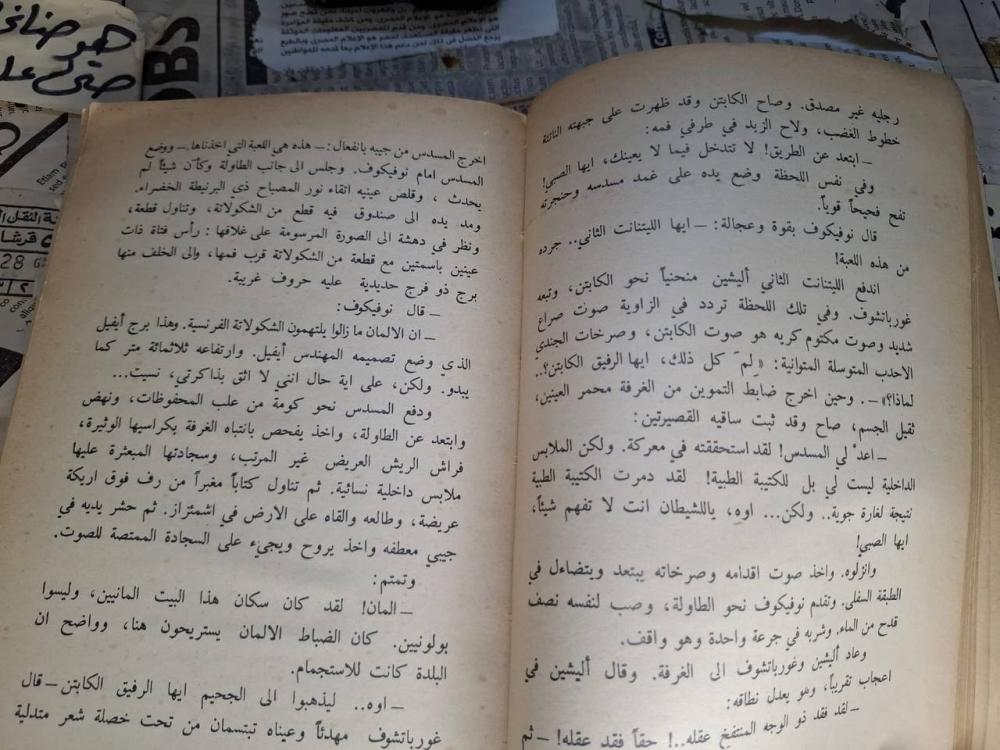 رجليه غير مصدق. وصاح الكابتن وقد ظهرت على جبهته الناتئة
خطوط الغضب، ولاح الزبد في طرفي فمه:
— ابتعد عن الطريق! لا تتدخل فيما لا يعينك، ايها الصبي!
وفي نفس اللحظة وضع يده على غمد مسدسه وحنجرته
تفح فحيحاً قوياً.
قال نوفيكوف بقوة وعجالة: — ايها الليتنانت الثاني.. جرده
من هذه اللعبة!
اندفع الليتنانت الثاني أليشين منحنياً نحو الكابتن، وتبعه
غورباتشوف. وفي تلك اللحظة تردد في الزاوية صوت صراع
شديد وصوت مكتوم كريه هو صوت الكابتن، وصرخات الجندي
الاحدب المتوسلة المتوانية: «لِمَ كل ذلك، ايها الرفيق الكابتن؟..
لماذا؟» —. وحين اخرج ضابط التموين من الغرفة محمر العينين،
ثقيل الجسم، صاح وقد ثبت ساقيه القصيرتين:
— اعدْ لي المسدس! لقد استحققته في معركة. ولكن الملابس
الداخلية ليست لي بل للكتيبة الطبية! لقد دمرت الكتيبة الطبية
نتيجة لغارة جوية.. ولكن... اوه، ياللشيطان انت لا تفهم شيئاً،
ايها الصبي!
وانزلوه. واخذ صوت اقدامه وصرخاته يبتعد ويتضاءل في
الطبقة السفلى. وتقدم نوفيكوف نحو الطاولة، وصب لنفسه نصف
قدح من الماء. وشربه في جرعة واحدة وهو واقف.
وعاد أليشين وغورباتشوف الى الغرفة. وقال أليشين في
اعجاب تقريباً، وهو يعدل نطاقه:
— لقد فقد ذو الوجه المنتفخ عقله..! حقاً فقد عقله! — ثم
اخرج المسدس من جيبه بانفعال: — هذه هي اللعبة التي اخذناها. — ووضع
المسدس امام نوفيكوف. وجلس الى جانب الطاولة وكأن شيئاً لم
يحدث ، وقلص عينيه اتقاء نور المصباح ذي البرنيطة الخضراء.
ومد يده الى صندوق فيه قطع من الشكولاتة، وتناول قطعة،
ونظر في دهشة الى الصورة المرسومة على غلافها : رأس فتاة ذات
عينين باسمتين مع قطعة من الشكولاتة قرب فمها، والى الخلف منها
برج ذو فرج حديدية عليه حروف غريبة.
— قال نوفيكوف:
— ان الالمان ما زالوا يلتهمون الشكولاتة الفرنسية. وهذا برج أيفيل
الذي وضع تصميمه المهندس أيفيل. وارتفاعه ثلاثمائة متر كما
يبدو. ولكن، على اية حال انني لا اثق بذاكرتي، نسيت...
ودفع المسدس نحو كومة من علب المحفوظات، ونهض
وابتعد عن الطاولة، واخذ يفحص بانتباه الغرفة بكراسيها الوثيرة،
فراش الريش العريض غير المرتب، وسجادتها المبعثرة عليها
ملابس داخلية نسائية. ثم تناول كتاباً مغبراً من رف فوق اريكة
عريضة، وطالعه والقاه على الارض في اشمئزاز. ثم حشر يديه في
جيبي معطفه واخذ يروح ويجيء على السجادة الممتصة للصوت.
وتمتم:
— المان! لقد كان سكان هذا البيت المانيين، وليسوا
بولونيين. كان الضباط الالمان يستريحون هنا، وواضح ان
البلدة كانت للاستجمام.
— اوه.. ليذهبوا الى الجحيم ايها الرفيق الكابتن — قال
غورباتشوف مهدئاً وعيناه تبتسمان من تحت خصلة شعر متدلية